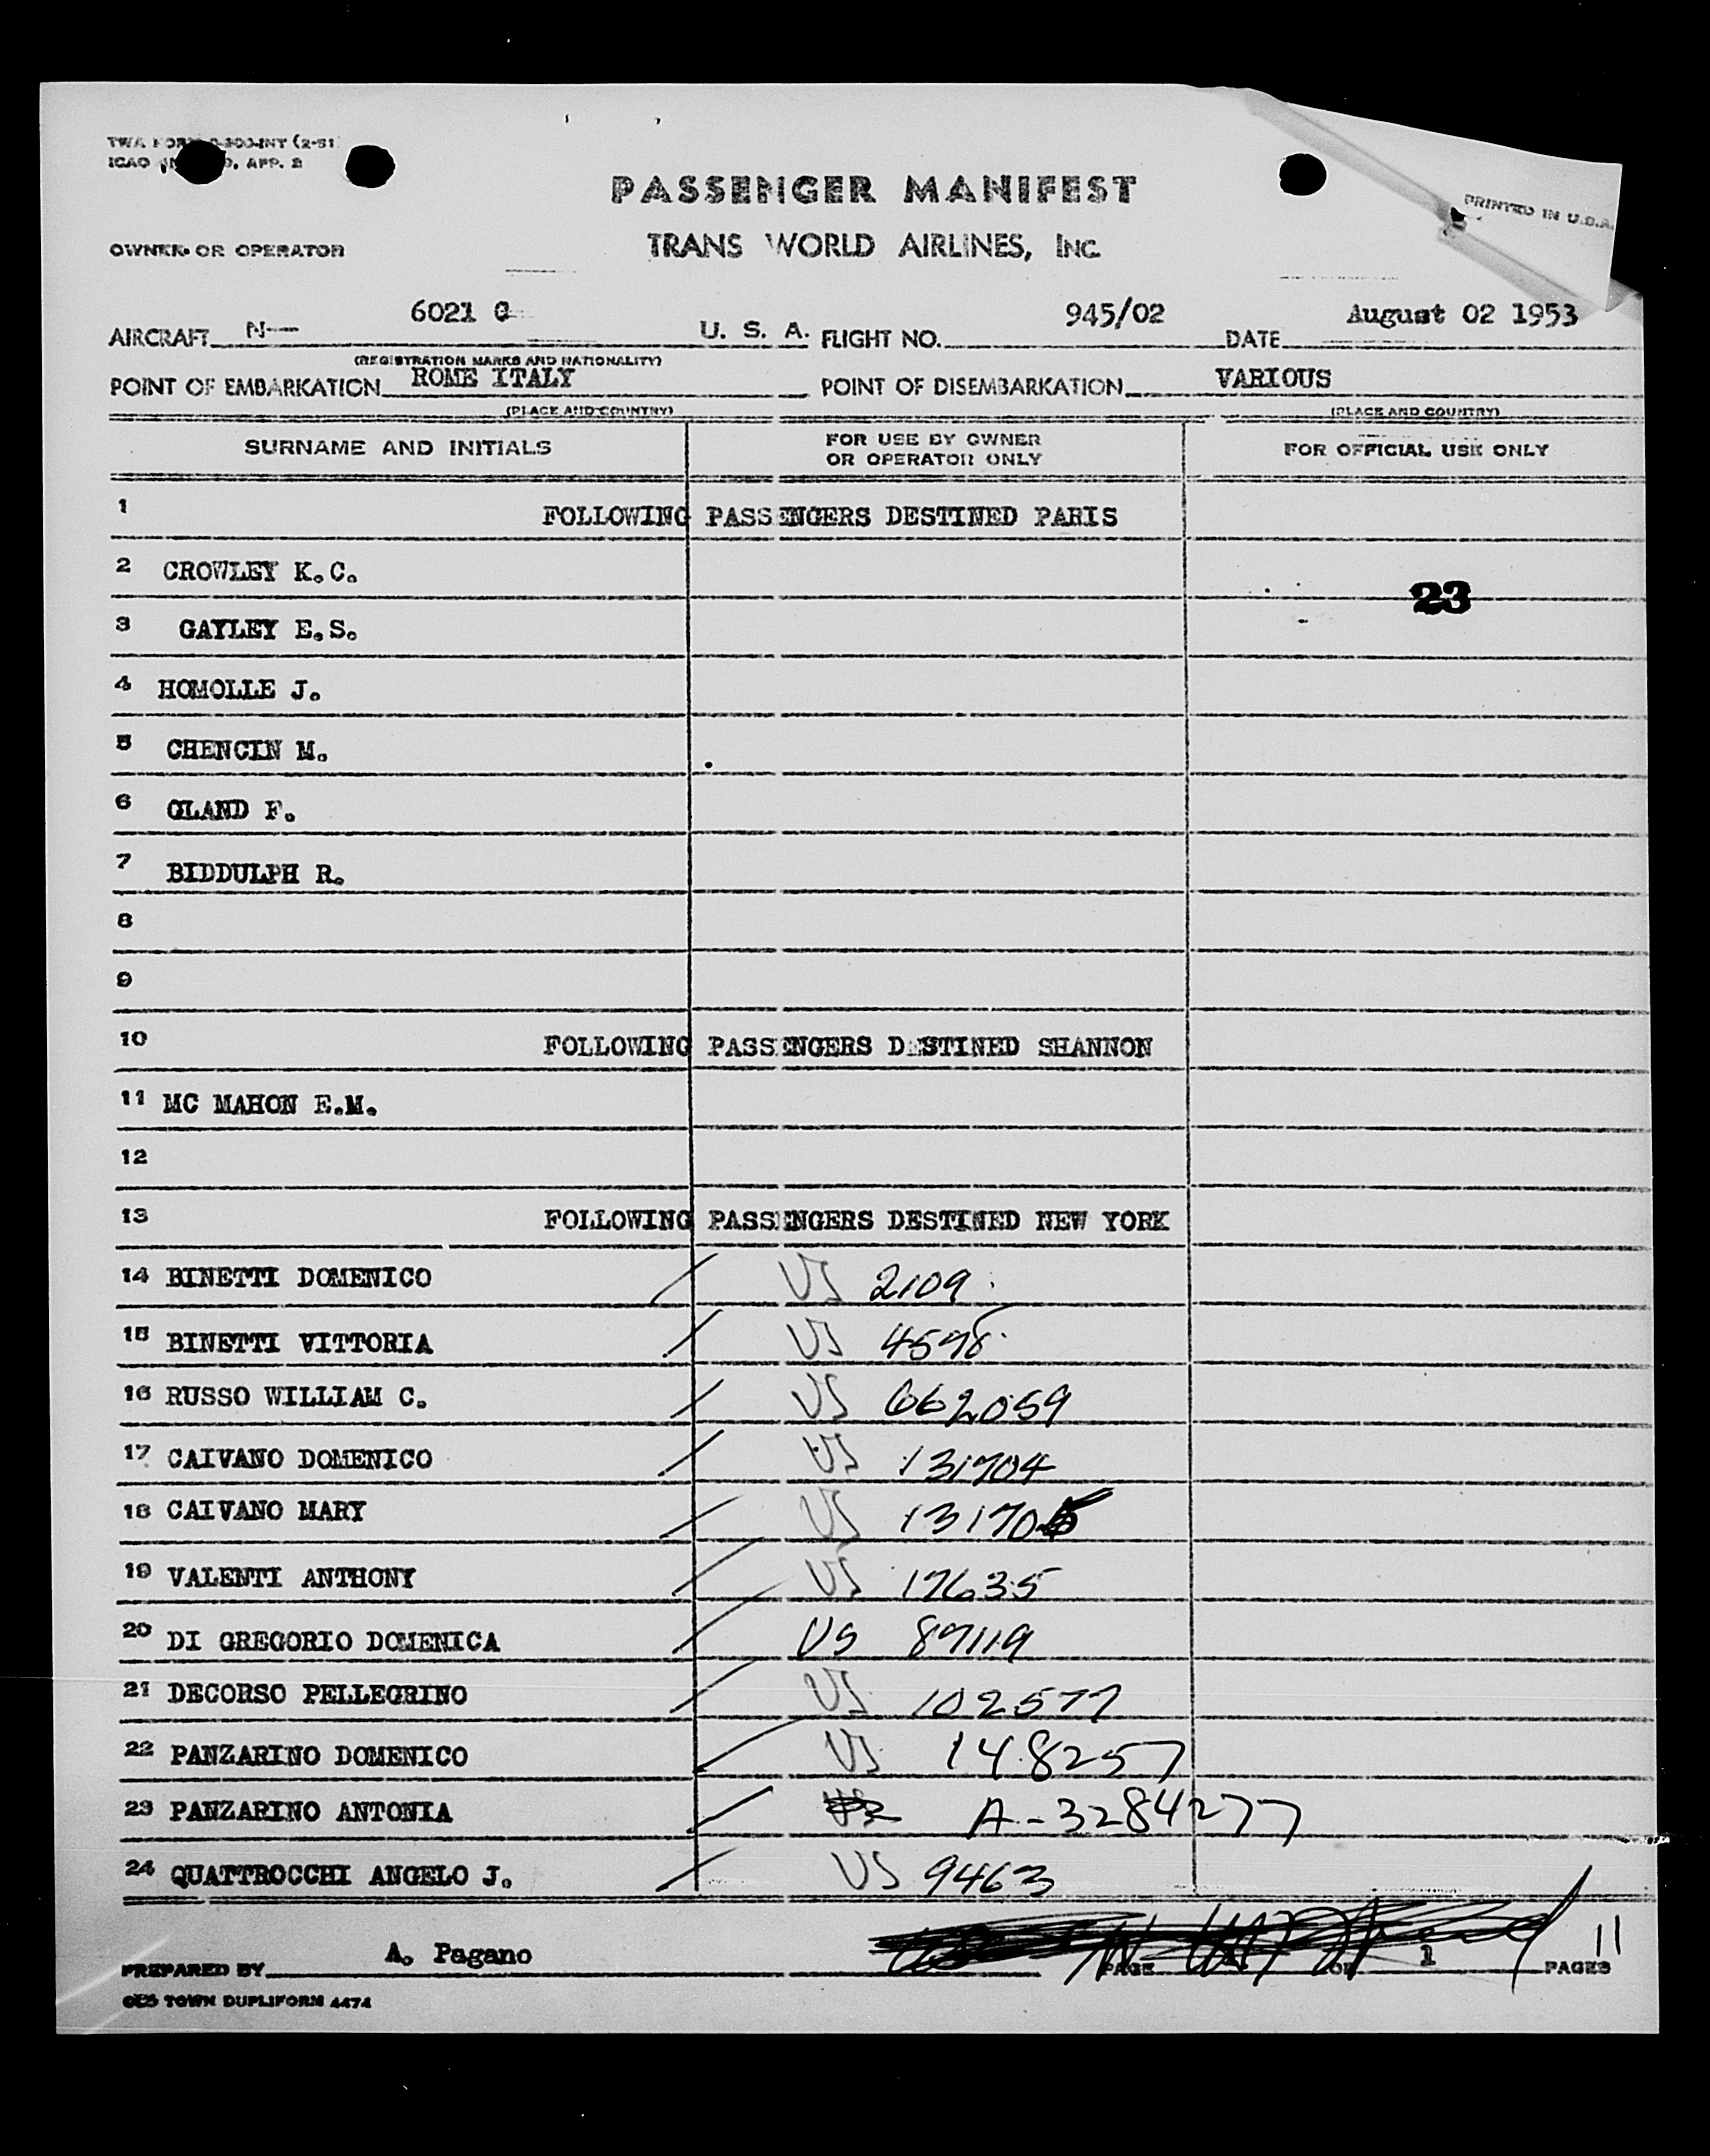 TWA FORM -300-INT (2-51
ICAO 9, APP. 2
PRINTED IN U.S.A.
PASSENGER MANIFEST
OWNER OR OPERATOR
TRANS WORLD AIRLINES, INC.
AIRCRAFT N- 6021 C U. S. A. FLIGHT NO. 945/02 DATE August 02 1953
(REGISTRATION MARKS AND NATIONALITY)
POINT OF EMBARKATION ROME ITALY POINT OF DISEMBARKATION VARIOUS
(PLACE AND COUNTRY) (PLACE AND COUNTRY)
SURNAME AND INITIALS FOR USE BY OWNER OR OPERATOR ONLY FOR OFFICIAL USE ONLY
1 FOLLOWING PASSENGERS DESTINED PARIS
2 CROWLEY K.C.
23
3 GAYLEY E.S.
4 HOMOLLE J.
5 CHENCIN M.
6 GLAND F.
7 BIDDULPH R.
8
9
10 FOLLOWING PASSENGERS DESTINED SHANNON
11 MC MAHON E.M.
12
13 FOLLOWING PASSENGERS DESTINED NEW YORK
14 BINETTI DOMENICO / US 2109
15 BINETTI VITTORIA / US 4598
16 RUSSO WILLIAM C. / US 662059
17 CAIVANO DOMENICO / US 131704
18 CAIVANO MARY / US 131705
19 VALENTI ANTHONY / US 17635
20 DI GREGORIO DOMENICA / US 87119
21 DECORSO PELLEGRINO / US 102577
22 PANZARINO DOMENICO / US 148257
23 PANZARINO ANTONIA / A-3284277
24 QUATTROCCHI ANGELO J. / US 9463
PREPARED BY A. Pagano PAGE OF 1 PAGES 11
OLD TOWN DUPLIFORM 4474